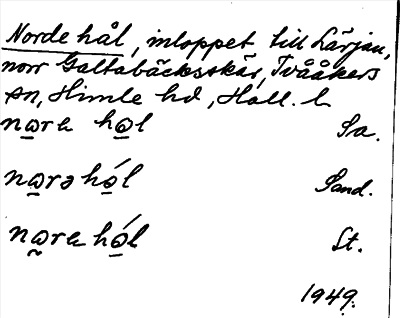 Norde hål, inloppet till Lärjan,
norr Galtabäcksskär, Tvååkers
sn, Himle hd, Hall. l.
nω̲ra ho̲l Sa.
nω̲rə hó̲l Sand.
nω̰ra hó̲l St.
1949.